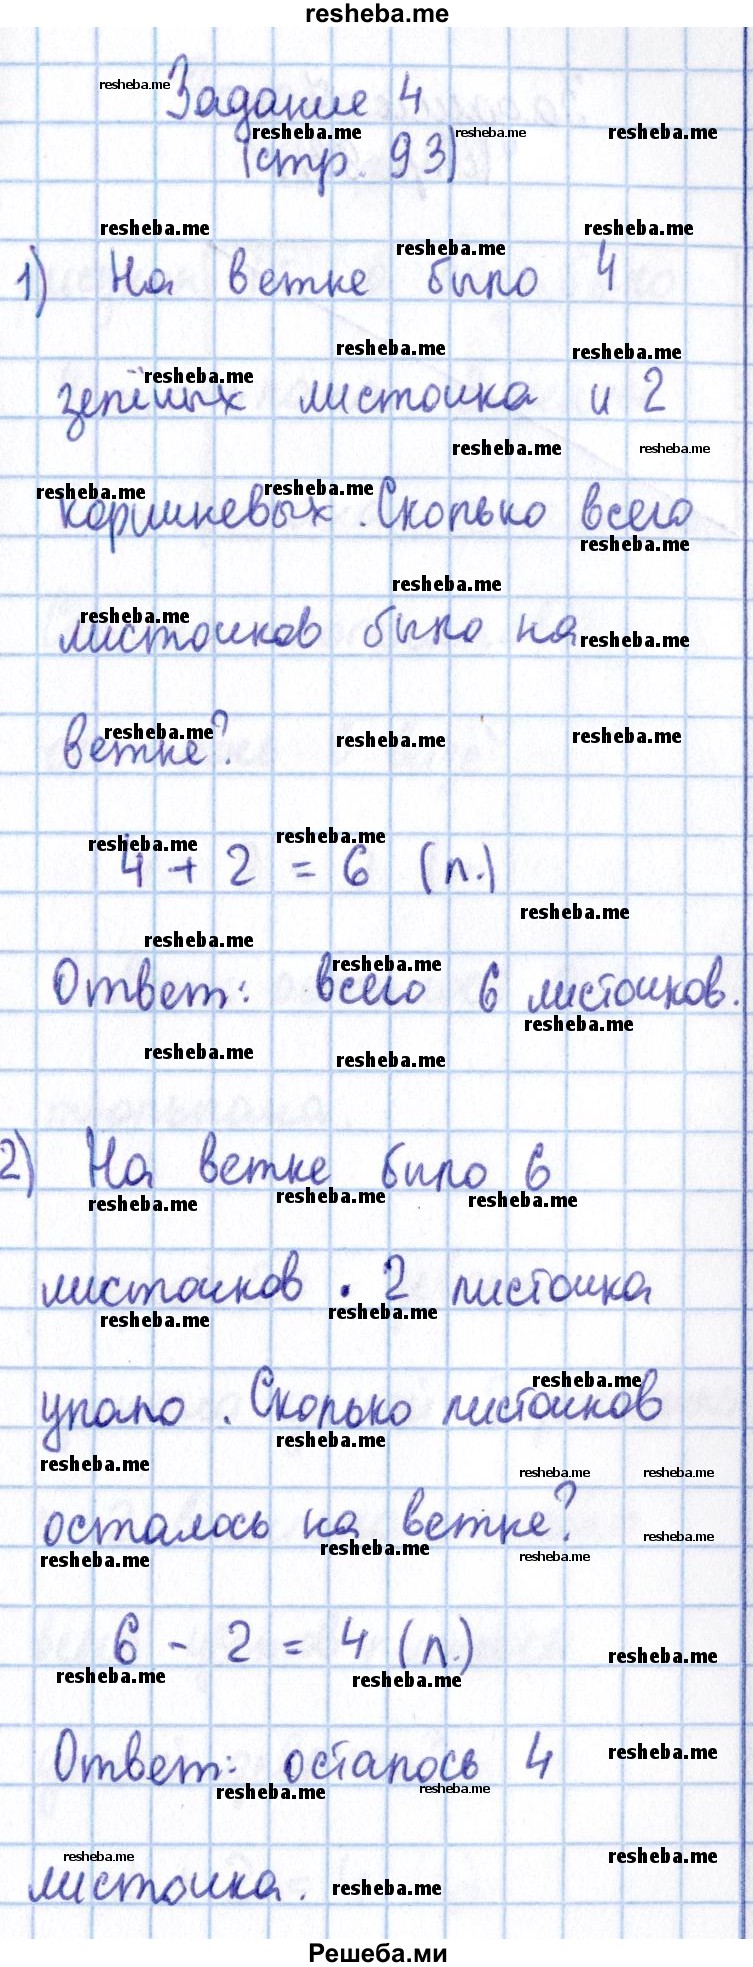 resheba.me
Задание 4
(стр. 93)
1) На ветке было 4
зелёных листочка и 2
коричневых. Сколько всего
листочков было на
ветке?
4 + 2 = 6 (л.)
Ответ: всего 6 листочков.
2) На ветке было 6
листочков. 2 листочка
упало. Сколько листочков
осталось на ветке?
6 - 2 = 4 (л.)
Ответ: осталось 4
листочка.
Решеба.ми